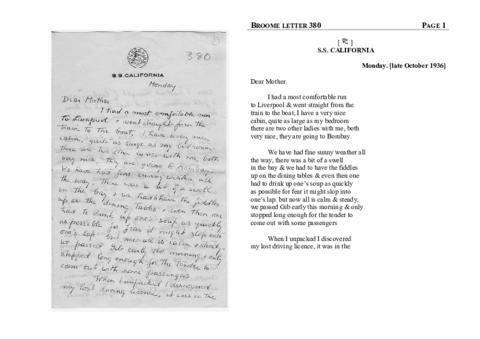 380
S.S. CALIFORNIA
Monday
Dear Mother
I had a most comfortable run
to Liverpool & went straight from the
train to the boat, I have a very nice
cabin, quite as large as my bedroom
there are two other ladies with me, both
very nice, they are going to Bombay.
We have had fine sunny weather all
the way, there was a bit of a swell
in the bay & we had to have the fiddles
up on the dining tables & even then one
had to drink up one's soup as quickly
as possible for fear it might slop into
one's lap. but now all is calm & steady,
we passed Gib early this morning & only
stopped long enough for the tender to
come out with some passengers
When I unpacked I discovered
my lost driving licence, it was in the
BROOME LETTER 380 PAGE 1
S.S. CALIFORNIA
Monday. [late October 1936]
Dear Mother
I had a most comfortable run
to Liverpool & went straight from the
train to the boat, I have a very nice
cabin, quite as large as my bedroom
there are two other ladies with me, both
very nice, they are going to Bombay.
We have had fine sunny weather all
the way, there was a bit of a swell
in the bay & we had to have the fiddles
up on the dining tables & even then one
had to drink up one's soup as quickly
as possible for fear it might slop into
one's lap. but now all is calm & steady,
we passed Gib early this morning & only
stopped long enough for the tender to
come out with some passengers
When I unpacked I discovered
my lost driving licence, it was in the